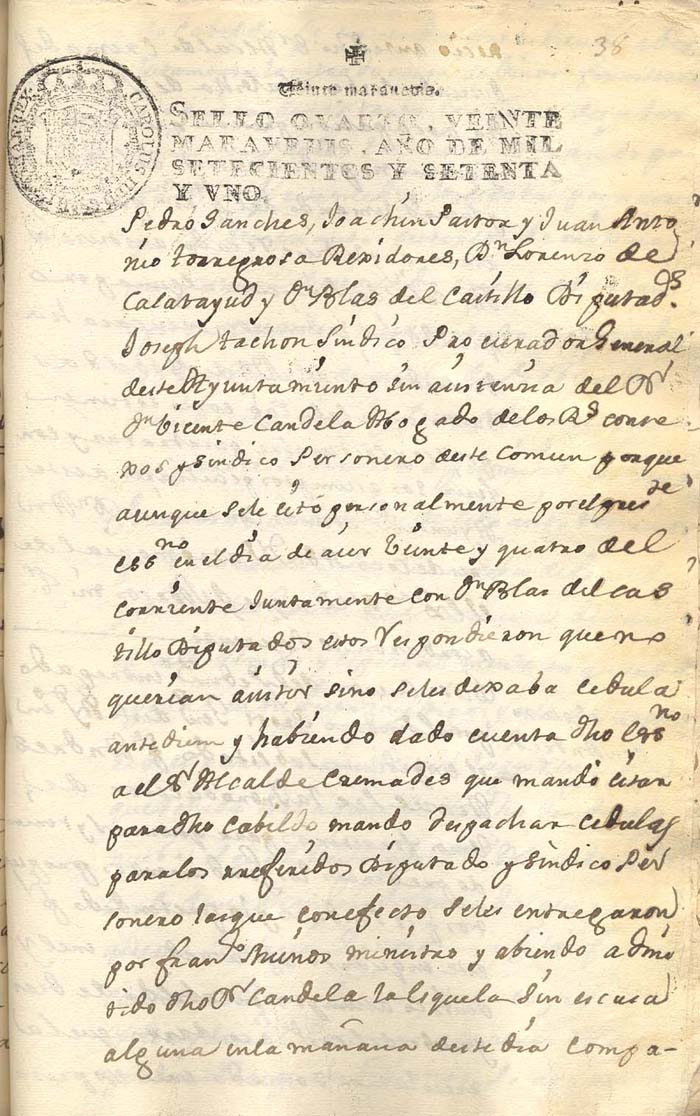 38
Veinte maravedis.
SELLO QVARTO, VEINTE
MARAVEDIS, AÑO DE MIL
SETECIENTOS Y SETENTA
Y VNO.
CAROLUS III D G HISPANIAR REX
Pedro Sanches, Joachin Pastor y Juan Anto
nio torregrosa Rexidores, Dn Lorenzo de
Calatayud y Dn Blas del Castillo Diputados
Joseph tachon Sindico Procurador General
deste Ayuntamiento sin asistenzia del Dr
Dn Vicente Candela Abogado delos Rs conse
xos y Sindico Personero deste Comun porque
aunque sele citó personalmente por el preste
essno en el dia de aier Veinte y quatro del
corriente Juntamente con Dn Blas del cas
tillo Diputados esos Respondieron que no
querian asistir sino seles dexaba cedula
antediem y habiendo dado cuenta dho Essno
a el Sr Alcalde Cremades que mandó citar
para dho Cabildo mando despachar cedulas
paralos rreferidos Diputado y Sindico Per
sonero las que con efecto seles entregaron
por Franco Muños ministro y abiendo admi
tido dho Dr Candela la esquela sin escusa
alguna en la mañana deste dia compa-